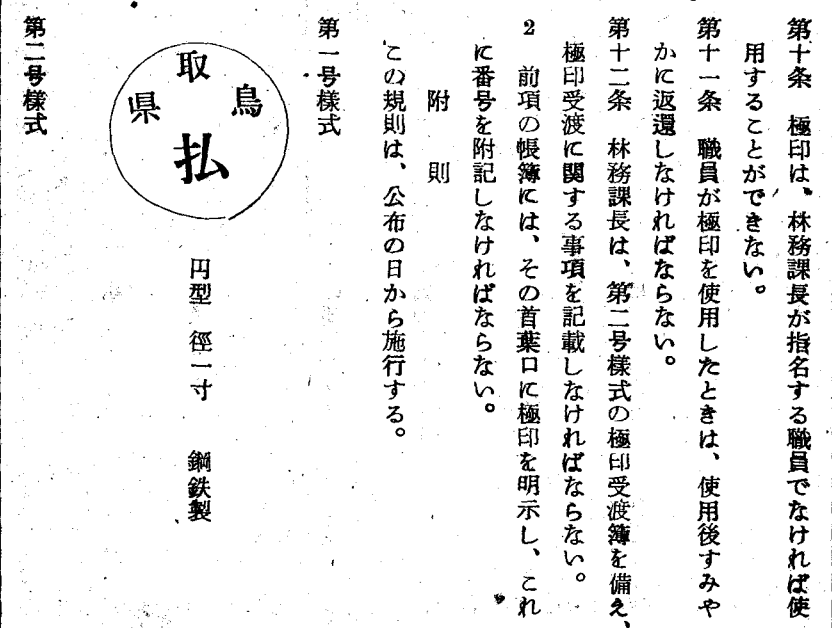 第十条　極印は、林務課長が指名する職員でなければ使
用することができない。
第十一条　職員が極印を使用したときは、使用後すみや
かに返還しなければならない。
第十二条　林務課長は、第二号様式の極印受渡簿を備え、
極印受渡に関する事項を記載しなければならない。
2　前項の帳簿には、その首葉口に極印を明示し、これ
に番号を附記しなければならない。
附　則
この規則は、公布の日から施行する。
第一号様式
鳥
取
県
払
円型　徑一寸　鋼鉄製
第二号様式